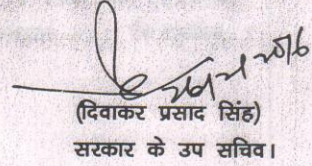 (दिवाकर प्रसाद सिंह)
सरकार के उप सचिव।